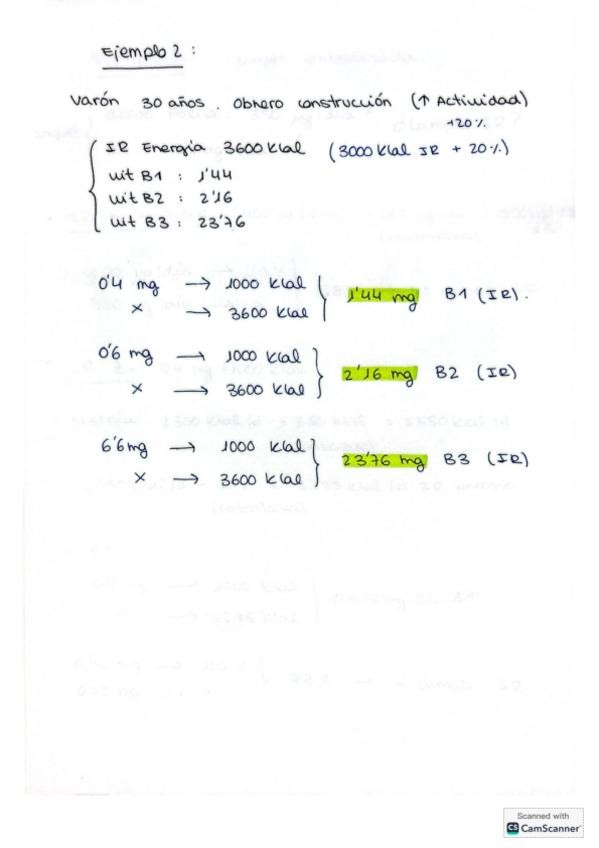 Ejemplo 2 :
Varón 30 años. Obrero construcción (↑ Actividad)
+20%
IR Energía 3600 Kcal (3000 Kcal IR + 20%)
vit B1 : 1'44
vit B2 : 2'16
vit B3 : 23'76
0'4 mg → 1000 Kcal
x → 3600 Kcal
1'44 mg B1 (IR).
0'6 mg → 1000 Kcal
x → 3600 Kcal
2'16 mg B2 (IR)
6'6 mg → 1000 Kcal
x → 3600 Kcal
23'76 mg B3 (IR)
Scanned with
CS CamScanner